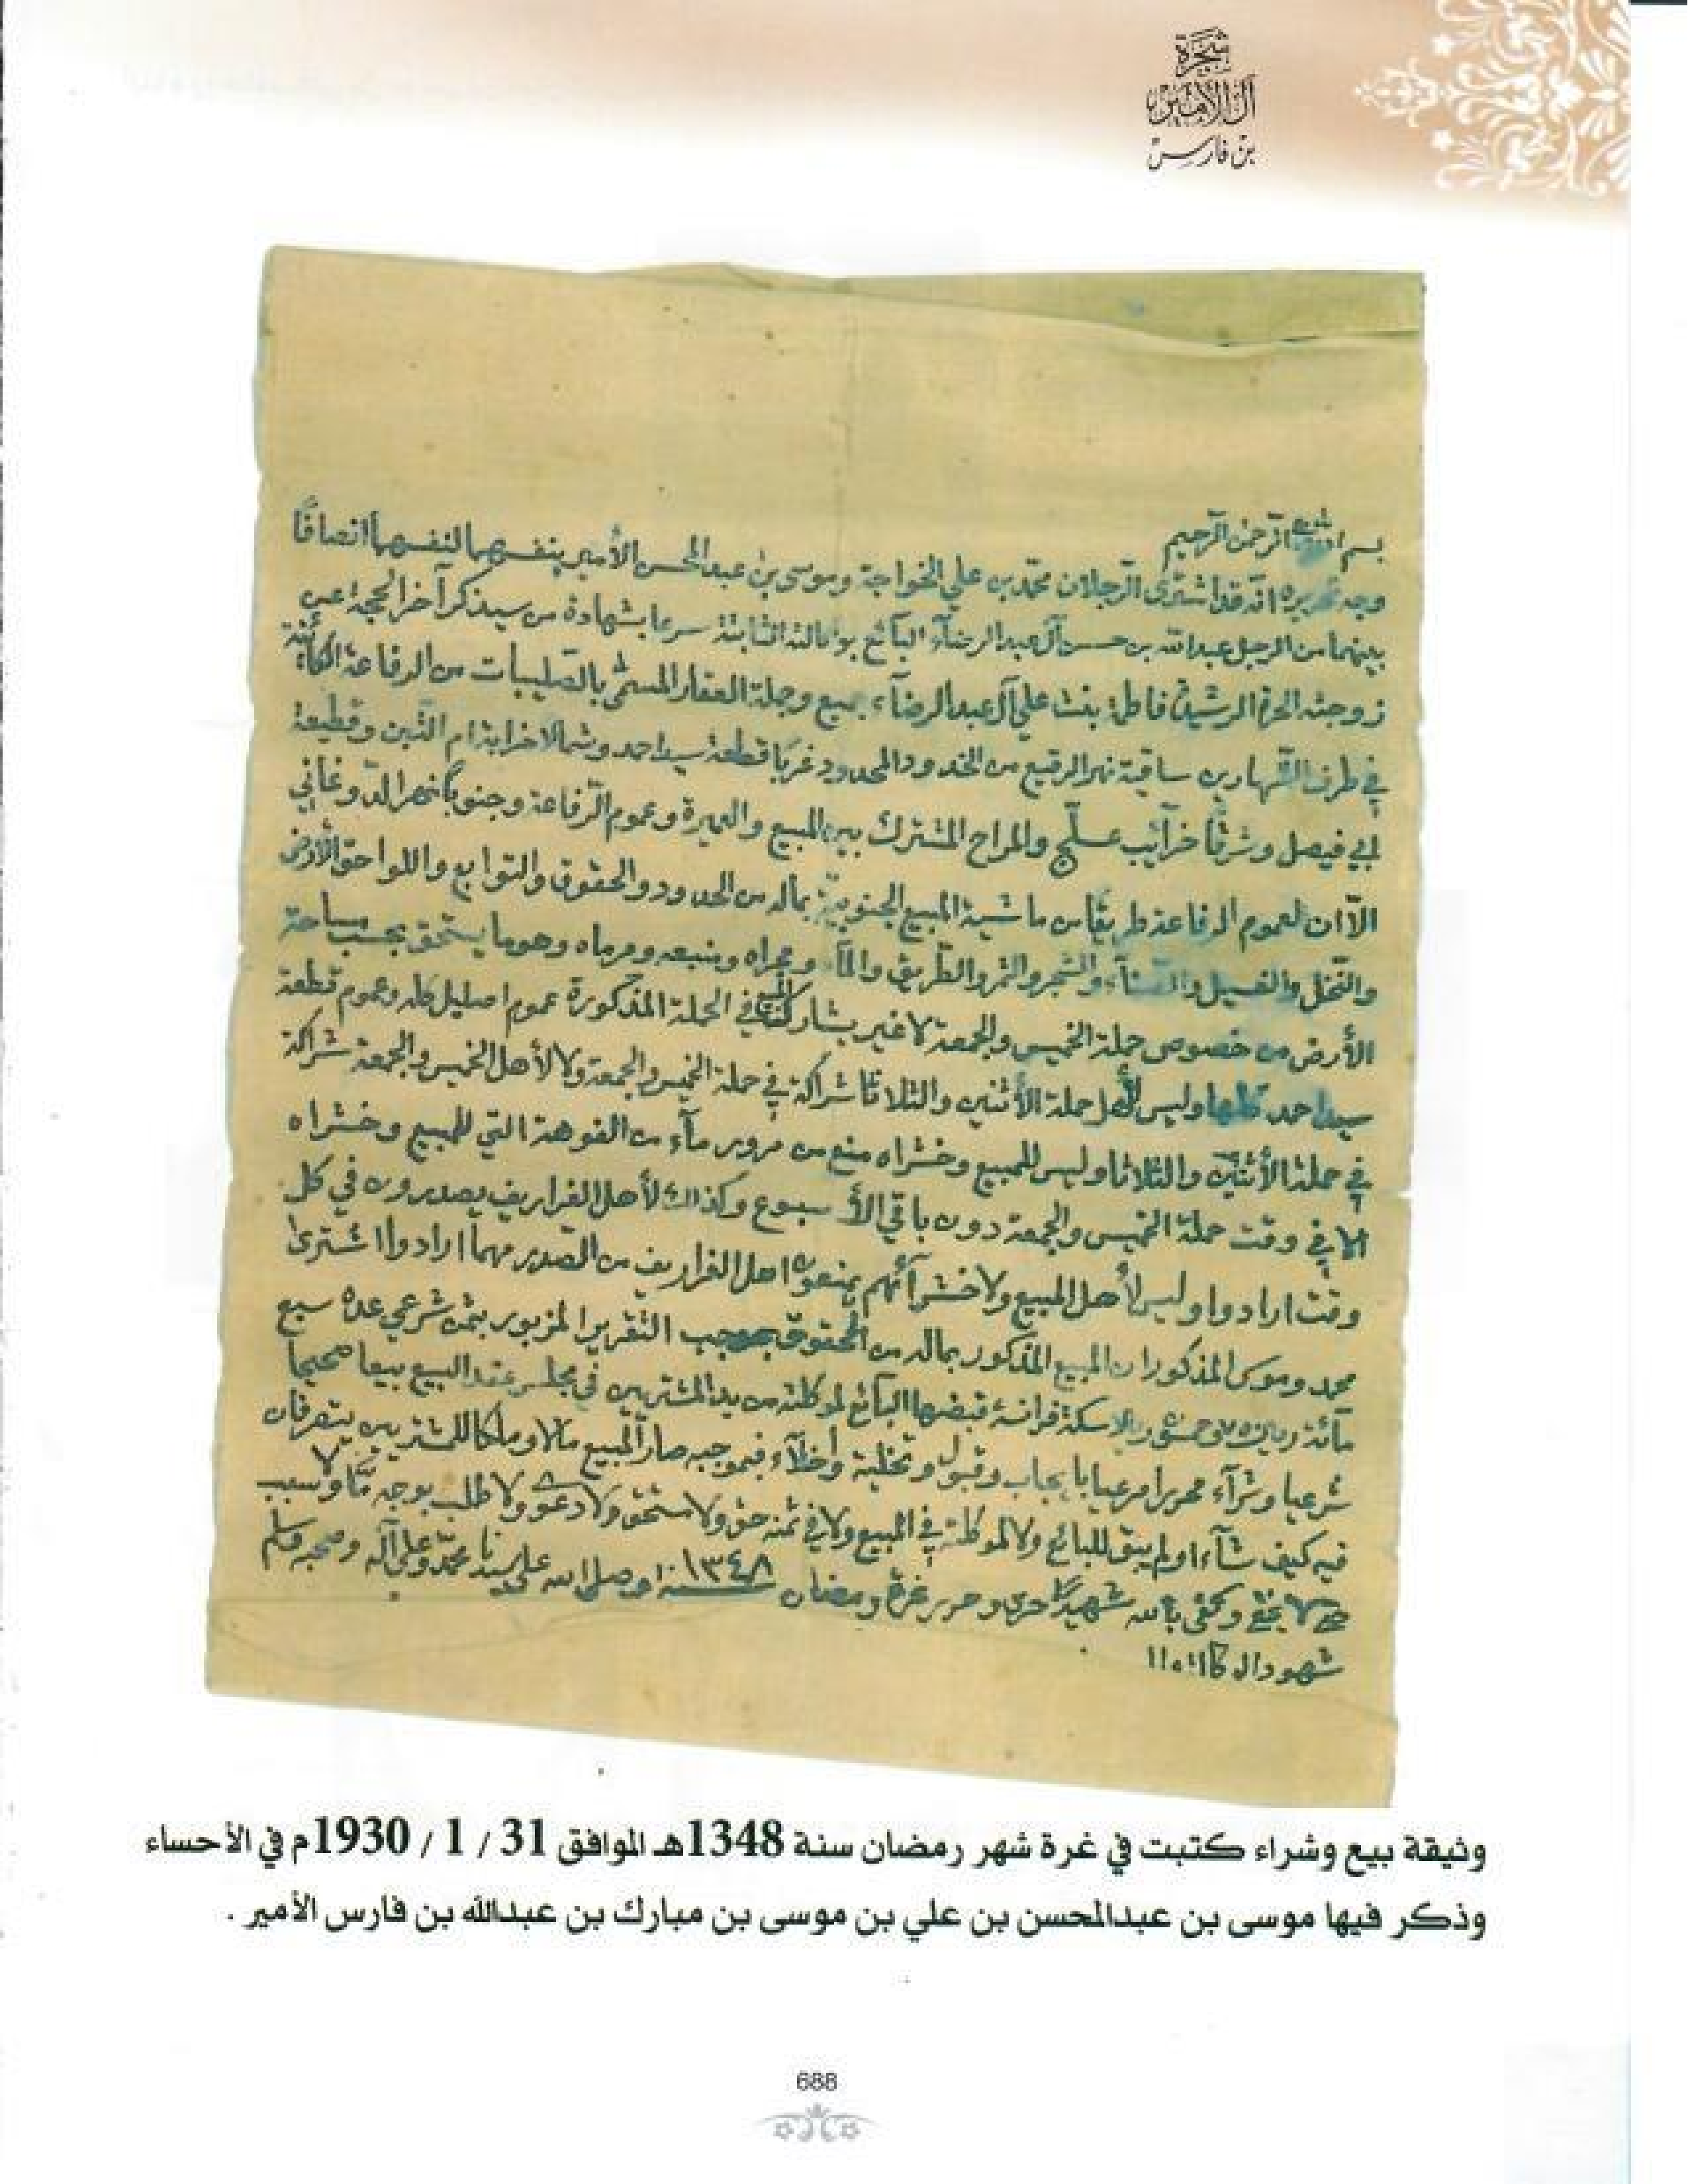 شجرة
آل الأمير
بن فارس
بسم الله الرحمن الرحيم
وجه تحريره انه قد اشترى الرجلان محمد بن علي الخواجة وموسى بن عبد المحسن الأمير بنفسهما لنفسهما انصافًا
بينهما من الرجل عبد الله بن حسن آل عبد الرضآء البآئع بوكالته الثابتة شرعا بشهادة من سيذكر آخر الحجة عن
زوجته الحرة الرشيدة فاطمة بنت علي آل عبد الرضآء جميع وجملة العقار المسمى بالصليبات من الرفاعة الكآئنة
في طرف السهارين ساقية نهر الرقيع من الخدود المحدود غربًا قطعة سيد احمد وشمالا خرابة ام التبن وقطيعة
ابي فيصل وشرقًا خرآئب عسلج والمراح المشترك بين المبيع والعميرة وعموم الرفاعة وجنوبًا نهر الدوغاني
الاّ ان لعموم الرفاعة طريقًا من ماشية المبيع الجنوبية بماله من الحدود والحقوق والتوابع واللواحق الأرض
والنخل والفسيل والبنآء والشجر والثمر والطريق والمآء ومجراه ومنبعه ومرماه وهو ما يستحق بحسب مساحة
الأرض من خصوص حملة الخميس والجمعة لا غير يشارك المبيع في الحملة المذكورة عموم اصليل كله وعموم قطعة
سيد احمد كلها وليس لأهل حملة الأثنين والثلاثا شراكة في حملة الخميس والجمعة ولا لأهل الخميس والجمعة شراكة
في حملة الأثنين والثلاثا وليس للمبيع وخشراه منع من مرور مآء من الفوهة التي للمبيع وخشراه
الا في وقت حملة الخميس والجمعة دون باقي الأسبوع وكذلك لأهل الغراريف يصدرون في كل
وقت ارادوا وليس لأهل المبيع ولا خشرآئهم يمنعون اهل الغراريف من الصدير مهما ارادوا اشترى
محمد وموسى المذكوران المبيع المذكور بماله من الحقوق بموجب التقرير المزبور بثمن شرعي عدة سبع
مآئة ريال سكة فرانسة قبضها البآئع لموكلته من يد المشتريين في مجلس عقد البيع بيعا صحيحا
شرعيا وشرآء محررا مرعيا بايجاب وقبول وتخلية وأخلآء فبموجبه صار المبيع مالا وملكا للمشتريين يتصرفان
فيه كيف شآءا ولم يبق للبائع ولا لموكلته في المبيع ولا في ثمنه حق ولا مستحق ولا دعوى ولا طلب بوجه ما وسبب
لا يخفى وكفى بالله شهيدًا جرى وحرر غرة رمضان سنة ١٣٤٨ وصلى الله على سيدنا محمد وعلى آله وصحبه وسلم
شهود
وثيقة بيع وشراء كتبت في غرة شهر رمضان سنة 1348هـ الموافق 31 / 1 / 1930م في الأحساء
وذكر فيها موسى بن عبدالمحسن بن علي بن موسى بن مبارك بن عبدالله بن فارس الأمير .
688